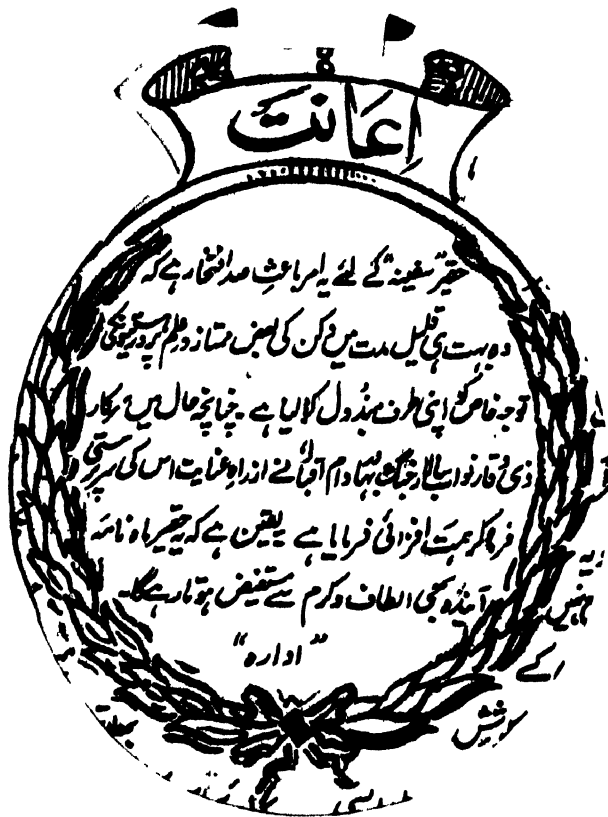 اِعانت
حقیر "سفینہ" کے لئے یہ امر باعثِ صد افتخار ہے کہ
وہ بہت ہی قلیل مدت میں دکن کی بعض ممتاز و علم پرور ہستیونکی
توجہ خاص کو اپنی طرف مبذول کرا لیا ہے۔ چنانچہ حال میں سرکار
ذی وقار نواب سالار جنگ بہادر دام اقبالہٗ نے از راہِ عنایت اس کی سرپرستی
فرما کر ہمت افزائی فرمایا ہے یقین ہے کہ یہ حقیر ماہ نامہ
آیندہ بھی الطاف و کرم سے مستفیض ہوتا رہے گا۔
"ادارہ"
کے
کوشش